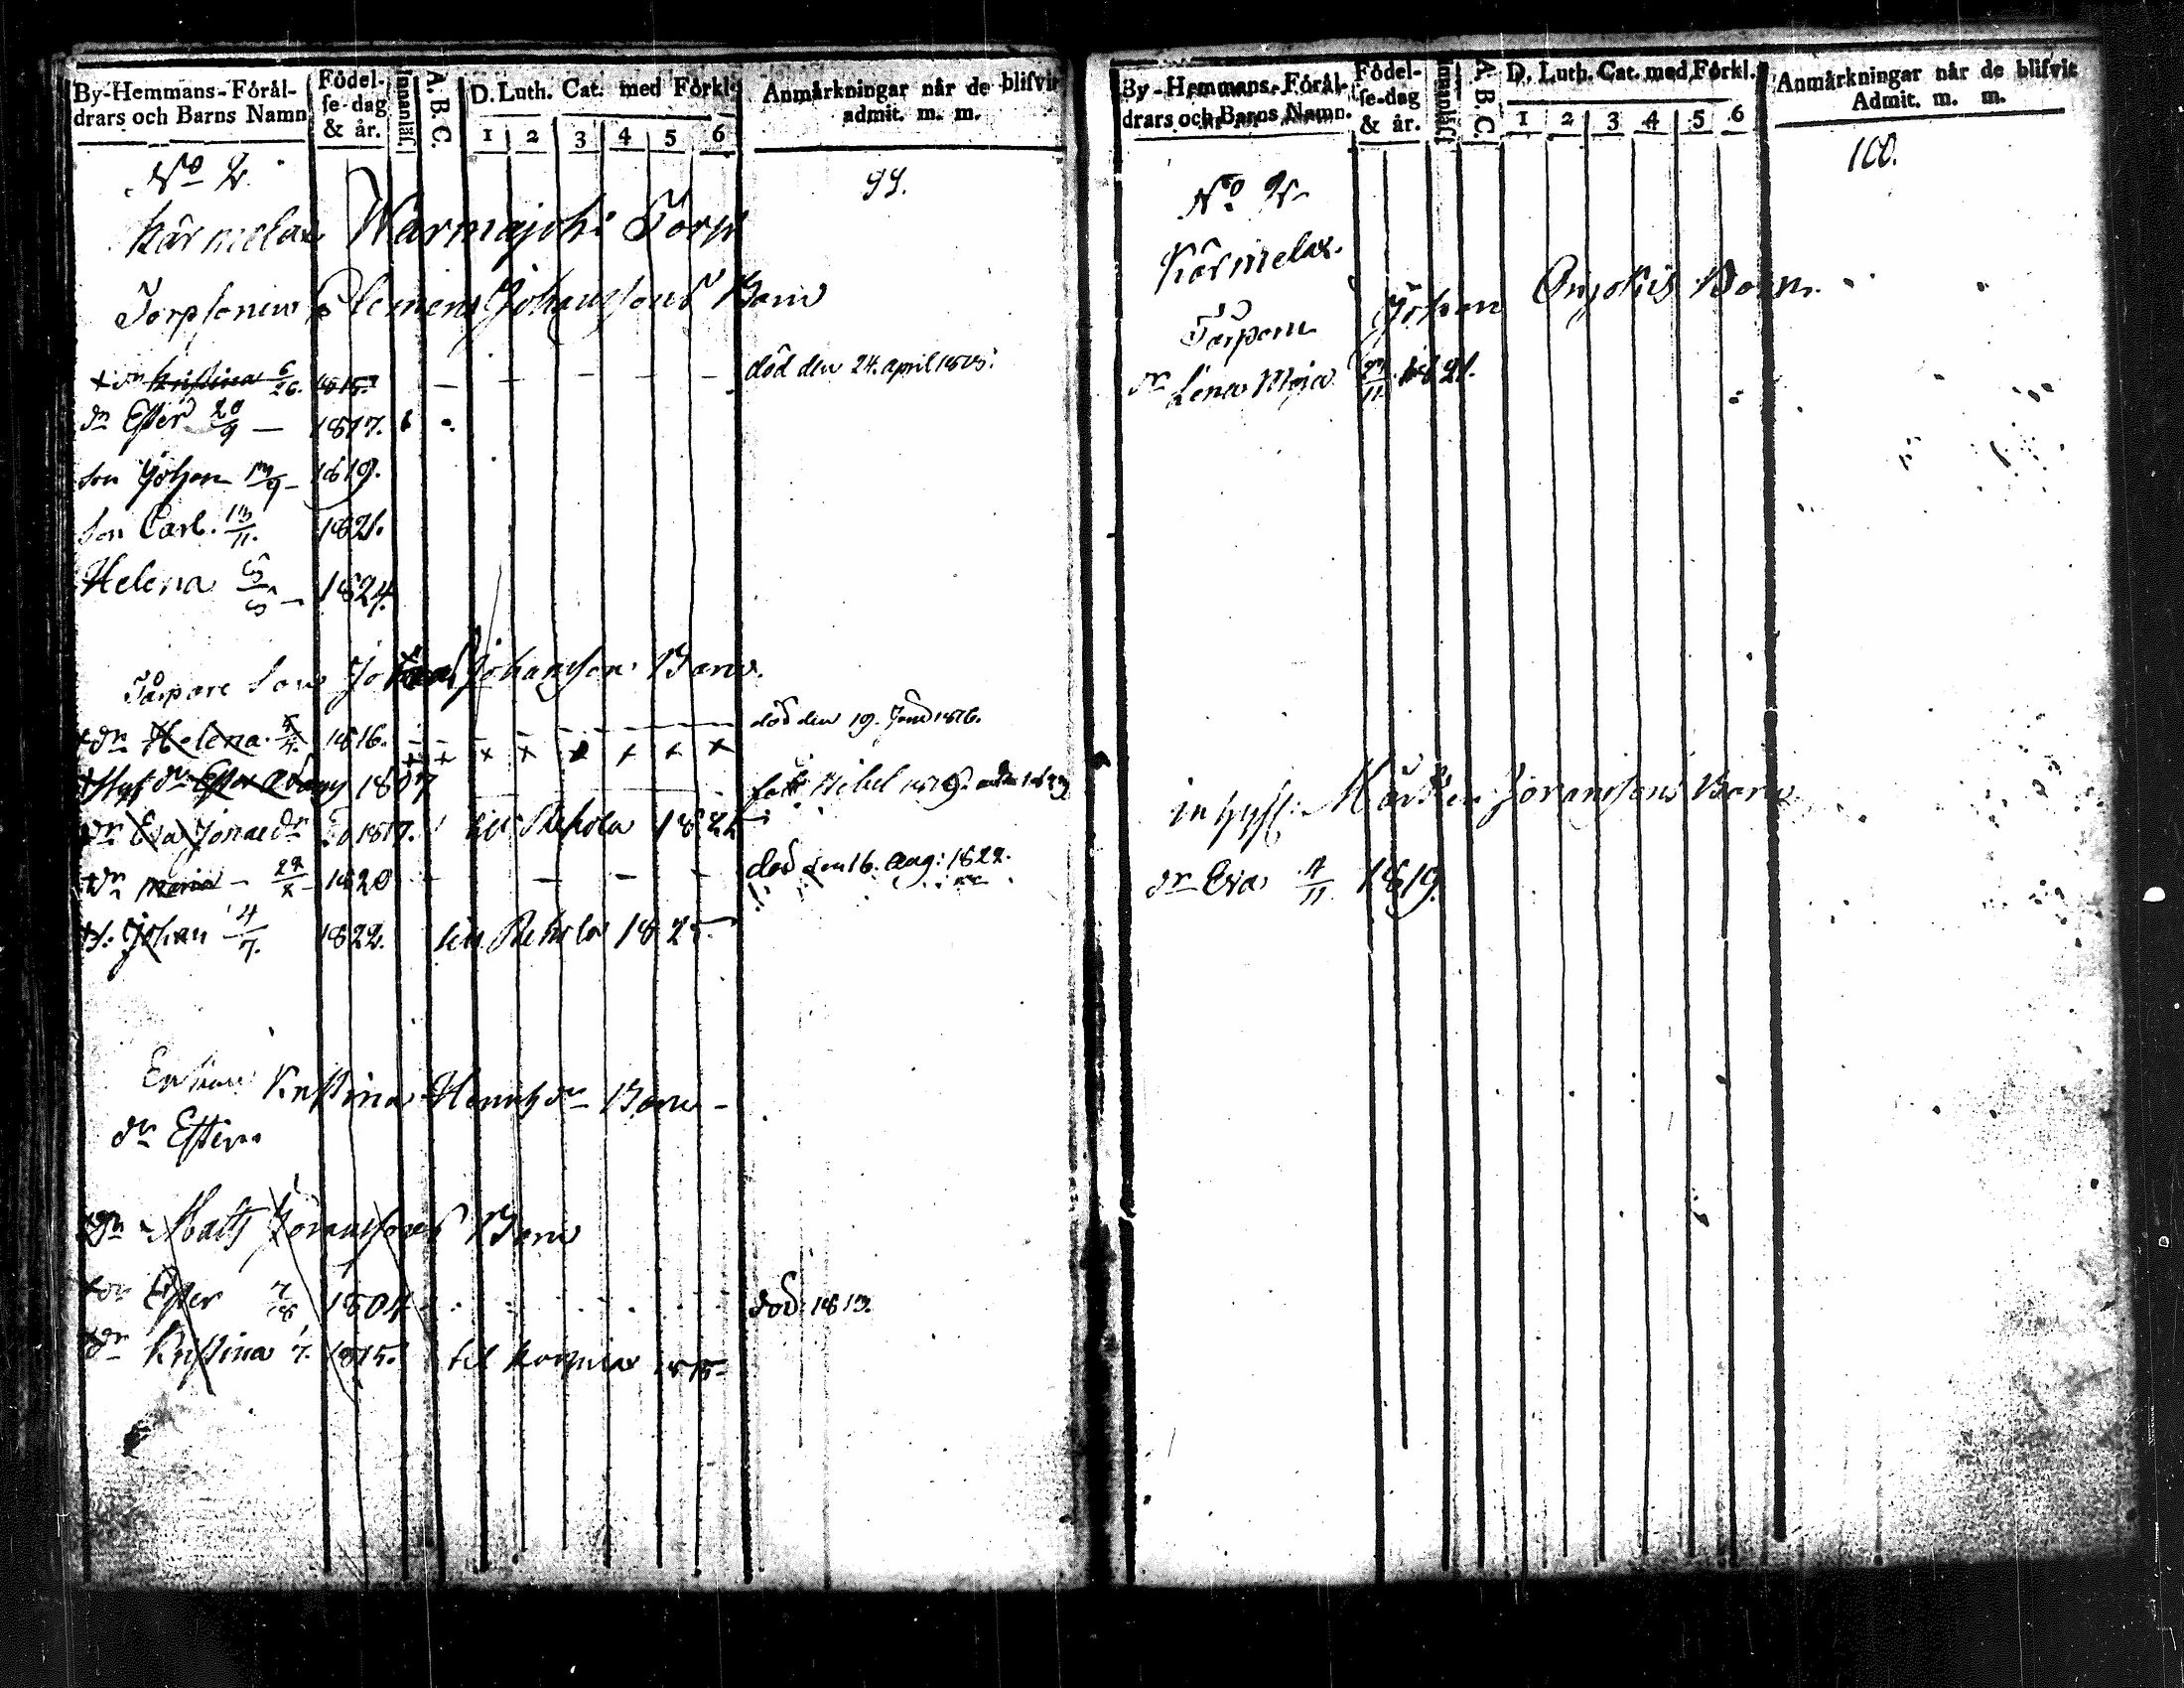 By-Hemmans-Förål-
drars och Barns Namn
Födel-
se-dag
& år.
Innanläs.
A. B. C.
D. Luth. Cat. med Förkl.
1 2 3 4 5 6
Anmärkningar når de blifvit
admit. m. m.
99.
No 2.
Kärmelax Warmajoki Torp
Torpsonen Clemens Johanssons Barn
+ dr Kristina 6/26. död den 24. april
dr Ester 20/9 — 1817.
son Johan 1819.
son Carl. 13/11. 1821.
Helena 1824.
Torpare Son Johanson Barn.
+ dr Helena. 1816. död den 19.
dr Ester 1807
dr Eva Jonae dr 1817. till Rekola 1825
+ dr Maria – 1820 död den 16. Aug: 1822.
+ s: Johan 4/7. 1822. till Rekola 1825.
Enkan Kristina Henr dr Barn –
dr Ester.
Matts Göranssons Barn
+ dr Ester 1804 död: 1813.
+ dr Kristina 1815. till
By-Hemmans-Förål-
drars och Barns Namn.
Födel-
se-dag
& år.
Innanläs.
A. B. C.
D. Luth. Cat. med Förkl.
1 2 3 4 5 6
Anmärkningar når de blifvit
Admit. m. m.
100.
No 2
Kärmelax.
Johan Barn.
dr Lena Maja 1821.
inhys: Mårten Göranssons Barn
dr Eva 1819.